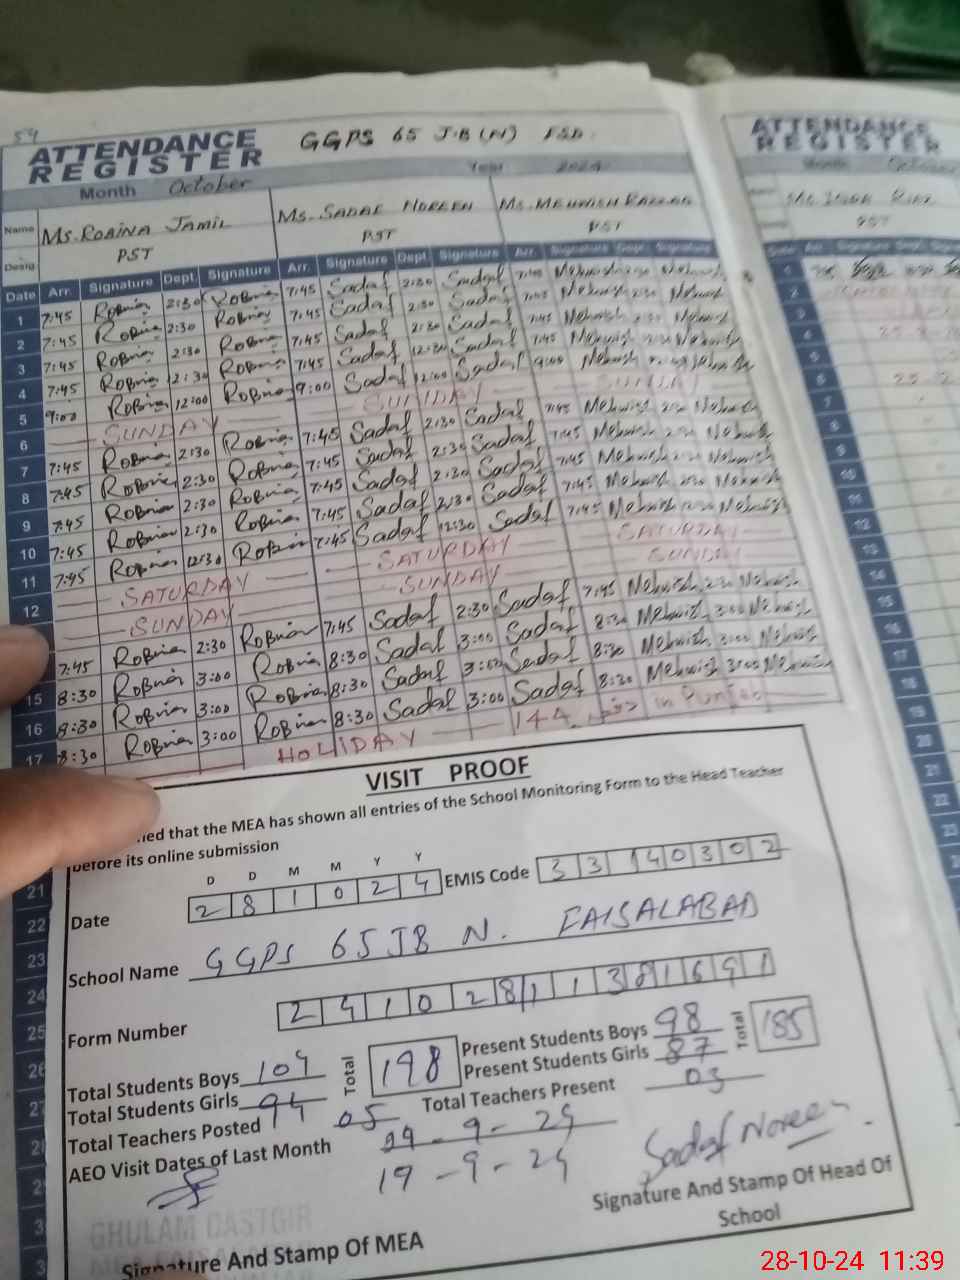 54
ATTENDANCE REGISTER
GGPS 65 J.B (N) FSD.
Month October
Year 2024
Name Ms. Robina Jamil
Ms. Sadaf Noreen
Desig PST
PST
PST
Date Arr. Signature Dept. Signature Arr. Signature Dept. Signature Arr. Signature Dept. Signature
1 7:45 Robina 2:30 Robina 7:45 Sadaf 2:30 Sadaf 7:45 Mehwish 2:30 Mehwish
2 7:45 Robina 2:30 Robina 7:45 Sadaf 2:30 Sadaf 7:45 Mehwish 2:30 Mehwish
3 7:45 Robina 2:30 Robina 7:45 Sadaf 2:30 Sadaf 7:45 Mehwish 2:30 Mehwish
4 7:45 Robina 12:30 Robina 7:45 Sadaf 12:30 Sadaf 7:45 Mehwish
5 9:00 Robina 12:00 Robina 9:00 Sadaf 12:00 Sadaf 9:00 Mehwish
6 SUNDAY SUNDAY SUNDAY
7 7:45 Robina 2:30 Robina 7:45 Sadaf 2:30 Sadaf 7:45 Mehwish 2:30 Mehwish
8 7:45 Robina 2:30 Robina 7:45 Sadaf 2:30 Sadaf 7:45 Mehwish 2:30 Mehwish
9 7:45 Robina 2:30 Robina 7:45 Sadaf 2:30 Sadaf 7:45 Mehwish 2:30 Mehwish
10 7:45 Robina 2:30 Robina 7:45 Sadaf 2:30 Sadaf 7:45 Mehwish 2:30 Mehwish
11 7:45 Robina 12:30 Robina 7:45 Sadaf 12:30 Sadaf 7:45 Mehwish Mehwish
12 SATURDAY SATURDAY SATURDAY
SUNDAY SUNDAY SUNDAY
7:45 Robina 2:30 Robina 7:45 Sadaf 2:30 Sadaf 7:45 Mehwish 2:30 Mehwish
15 8:30 Robina 3:00 Robina 8:30 Sadaf 3:00 Sadaf 8:30 Mehwish 3:00 Mehwish
16 8:30 Robina 3:00 Robina 8:30 Sadaf 3:00 Sadaf 8:30 Mehwish 3:00 Mehwish
17 8:30 Robina 3:00 Robina 8:30 Sadaf 3:00 Sadaf 8:30 Mehwish 3:00 Mehwish
HOLIDAY 144 in Punjab
VISIT PROOF
that the MEA has shown all entries of the School Monitoring Form to the Head Teacher
before its online submission
D D M M Y Y
Date 2 8 1 0 2 4 EMIS Code 3 3 1 4 0 3 0 2
School Name GGPS 65 JB N. FAISALABAD
Form Number 2 4 1 0 2 8 1 1 3 8 1 6 9 1
Total Students Boys 104 Total 198 Present Students Boys 98 Total 185
Total Students Girls 94 Present Students Girls 87
Total Teachers Posted 05 Total Teachers Present 03
AEO Visit Dates of Last Month
19-9-24
Sadaf Noreen
GHULAM DASTGIR
Signature And Stamp Of MEA
Signature And Stamp Of Head Of School
21
22
23
24
25
26
27
ATTENDANCE REGISTER
Month October
PST
28-10-24 11:39